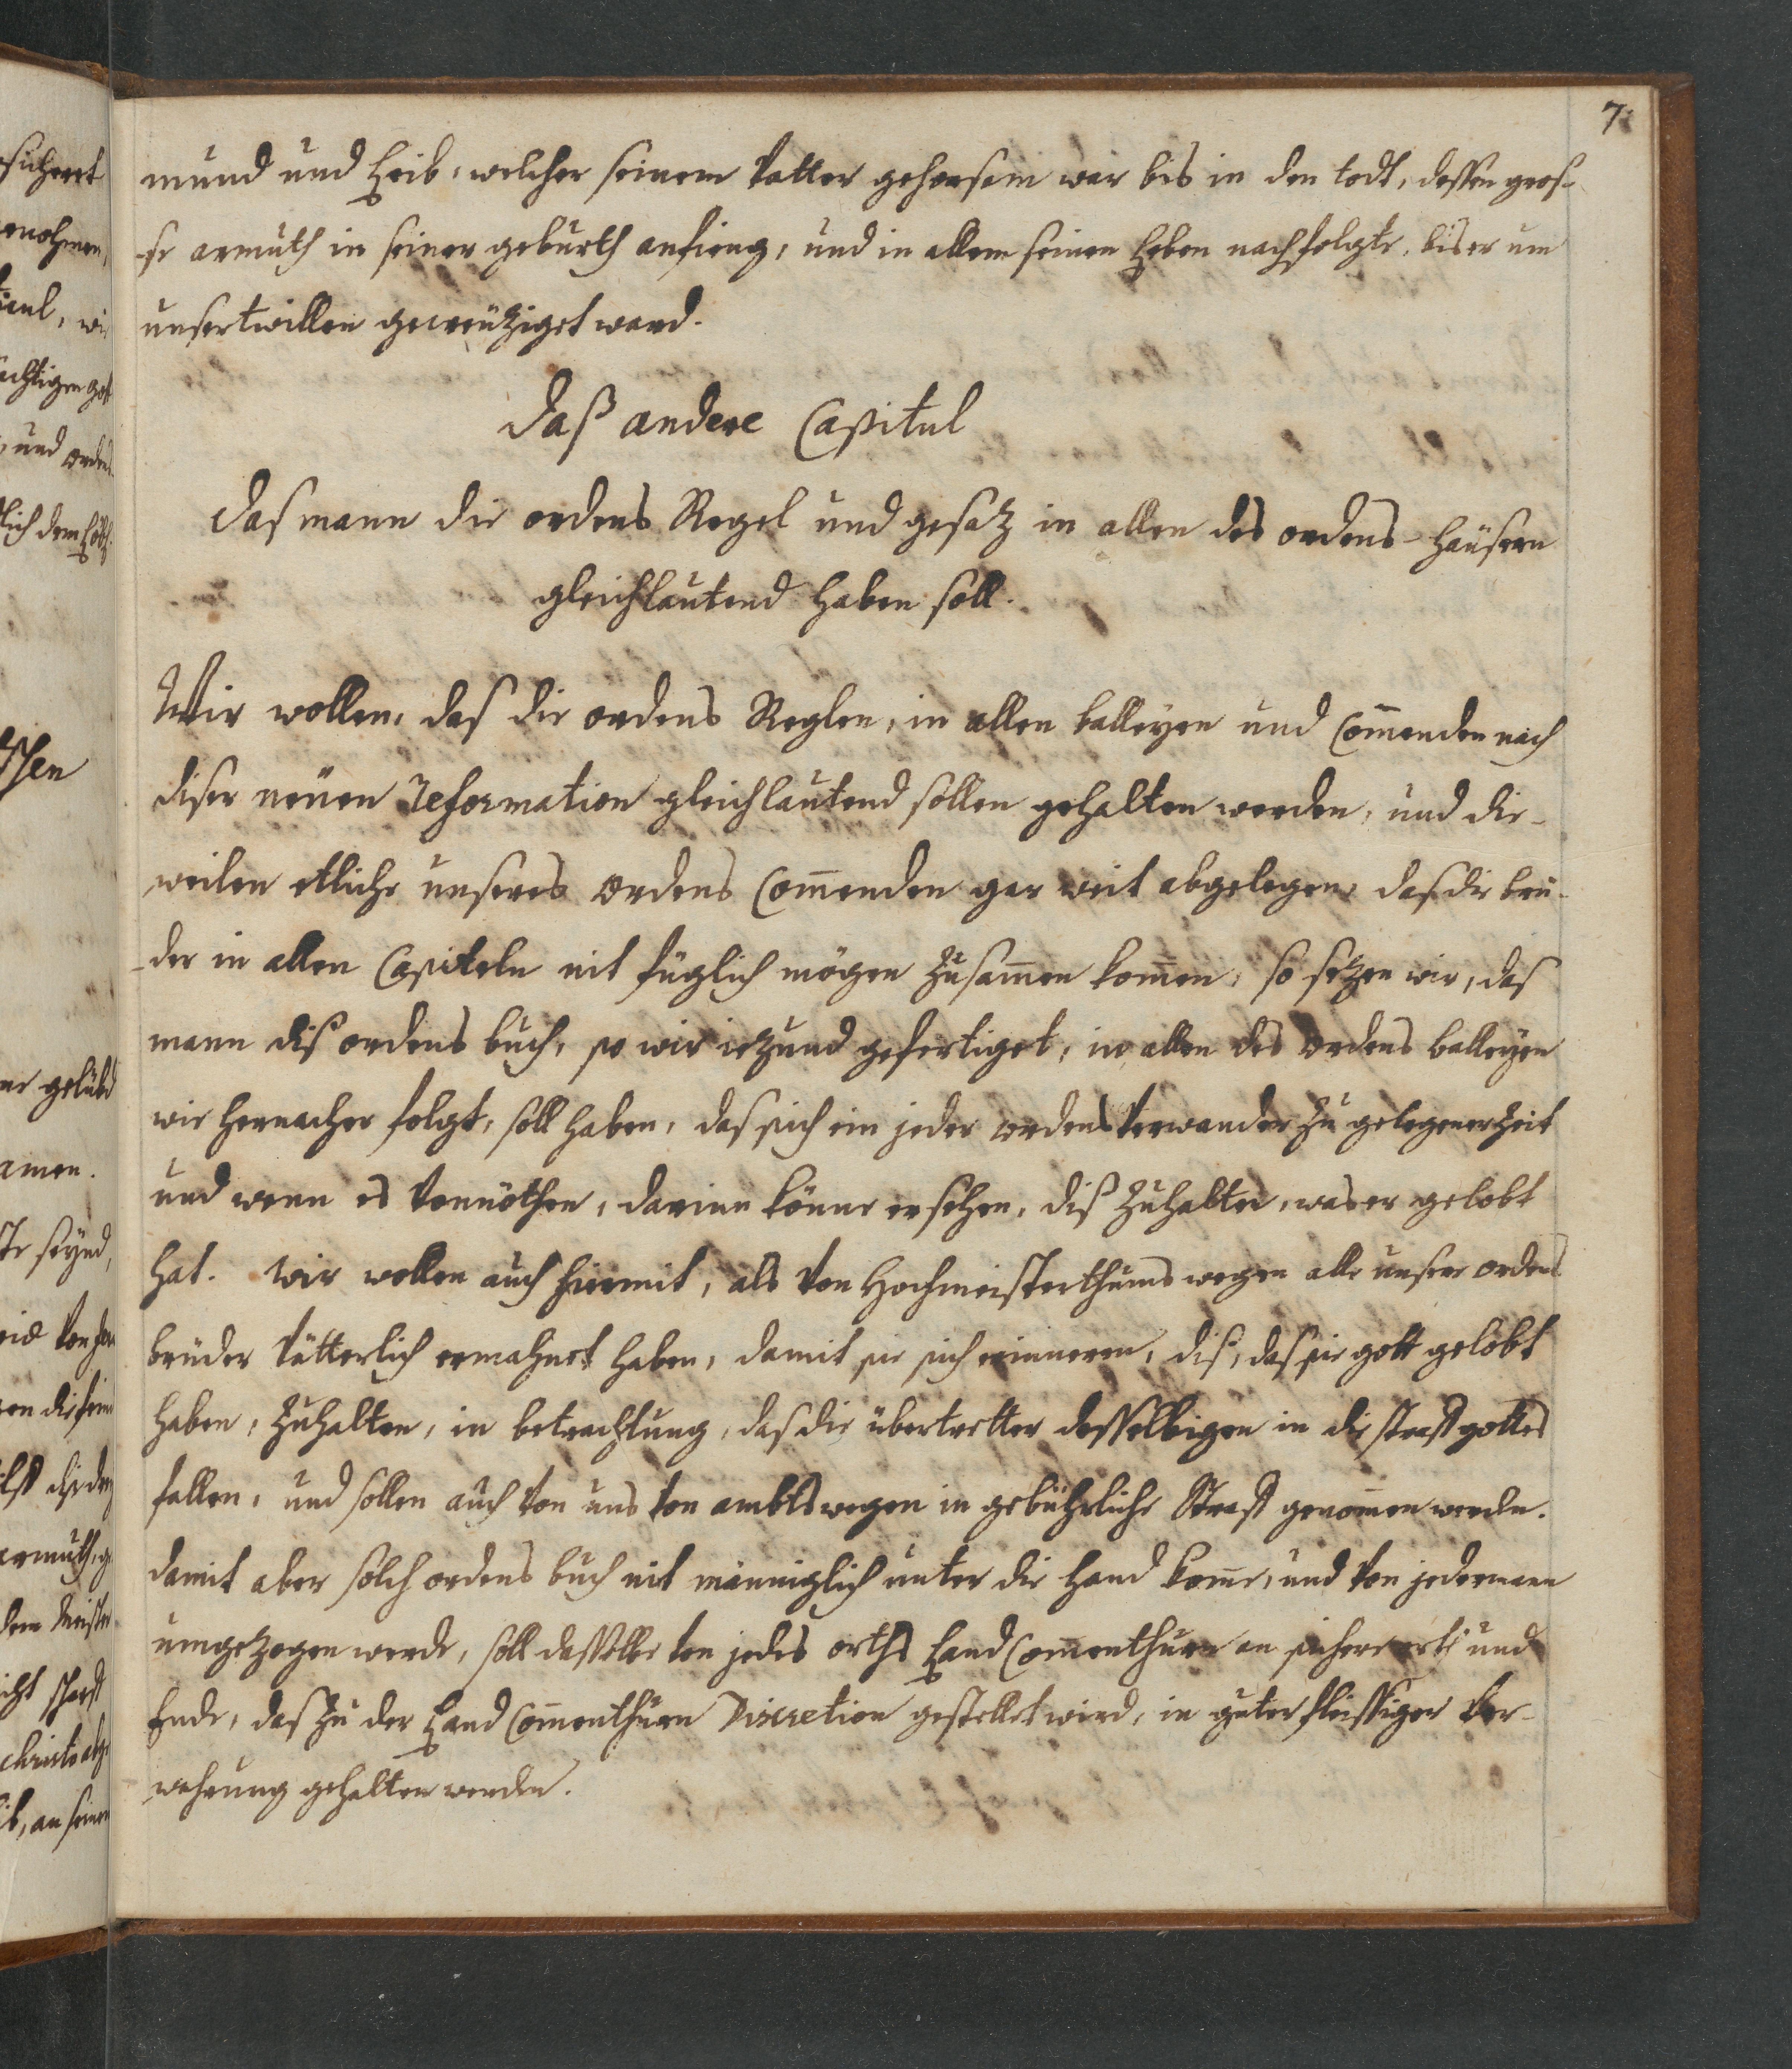 7.
mund und Leib, welcher seinem Vatter gehorsam war bis in den todt, dessen gros-
-se armuth in seiner geburth anfieng, und in allem seinen Leben nachfolgte, bis er um
unsertwillen gecreützigt ward.
Daß andere Capitul
Das mann die ordens Regel und gesatz in allen des ordens-häusern
gleichlautend haben soll.
Wir wollen, das die ordens Reglen, in allen balleyen und Com̄enden nach
diser neüen Reformation gleichlautend sollen gehalten werden, und die-
weilen etliche unseres ordens Com̄enden gar weit abgelegen, das die brü-
-der in allen Capiteln nit füglich mögen zusam̄en kom̄en, so setzen wir, das
mann diß ordens buch, so wir iezund gefertiget, in allen des ordens balleyen
wie hernacher folgt, soll haben, das sich ein jeder ordens verwander zu gelegener Zeit
und wenn es vonnöthen, darinn könne ersehen, diß zuhalten, was er gelobt
hat. Wir wollen auch hiermit, als von Hochmeisterthums wegen alle unsere ordens
brüder vätterlich ermahnet haben, damit sie sich erinneren, diß, das sie gott gelobt
haben, zuhalten, in betrachtung, das die übertretter desselbigen in die straff gottes
fallen, und sollen auch von uns von ambts wegen in gebührliche Straff genom̄en werden.
damit aber solch ordens buch nit männiglich unter die hand kom̄e, und von jedermann
umgezogen werde, soll dasselbe von jedes orths Land Com̄enthurn an sichere orth und
Ende, das zu der Land Com̄enthurn Discretion gestellet wird, in guter fleissiger ver-
wahrung gehalten werden.